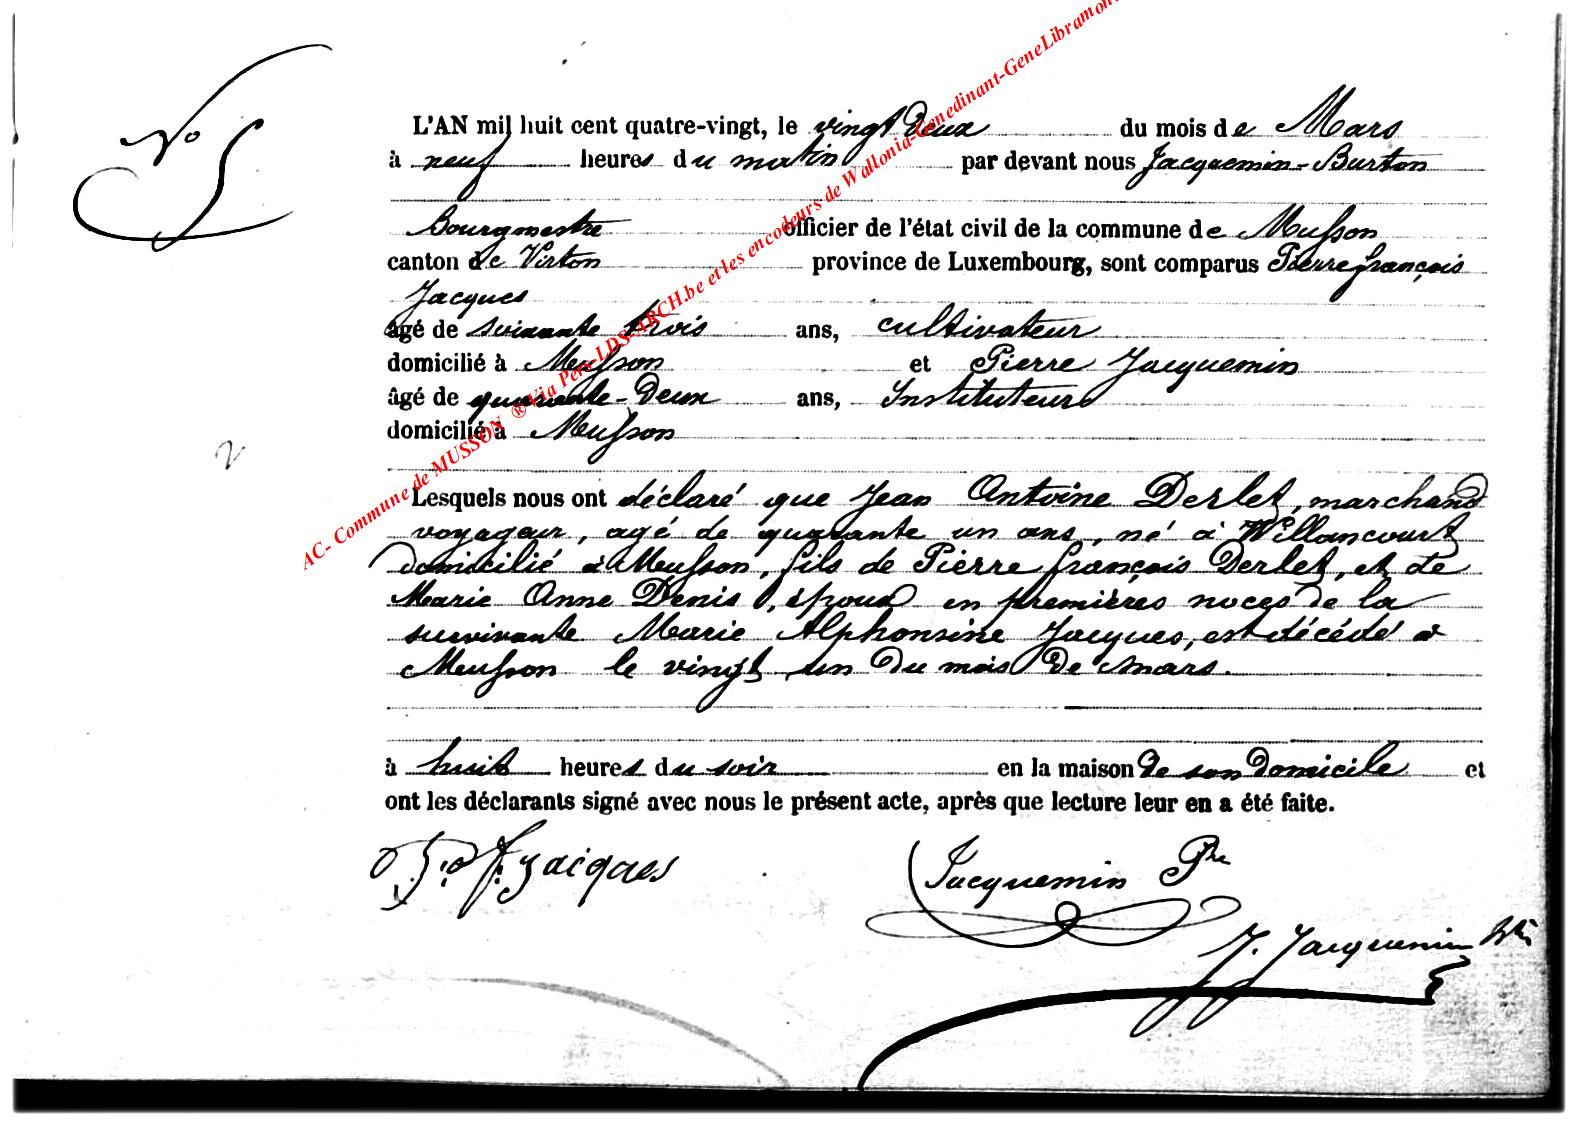 No 5
L'AN mil huit cent quatre-vingt, le vingt deux du mois de Mars
à neuf heures du matin par devant nous Jacquemin-Burton
Bourgmestre officier de l'état civil de la commune de Musson
canton de Virton province de Luxembourg, sont comparus Pierre françois
Jacques
âgé de soixante trois ans, cultivateur
domicilié à Musson et Pierre Jacquemin
âgé de quarante-Deux ans, Instituteur
domicilié à Musson
2
Lesquels nous ont déclaré que Jean Antoine Derlet, marchand
voyageur, agé de quarante un ans, né à Willancourt
domicilié à Musson, fils de Pierre françois Derlet, et de
Marie Anne Denis, époux en premières noces de la
survivante Marie Alphonsine Jacques, est décédé à
Musson le vingt un du mois de mars.
à huit heures du soir en la maison de son domicile et
ont les déclarants signé avec nous le présent acte, après que lecture leur en a été faite.
F. Jacques
Jacquemin Pre
J. Jacquemin
AC- Commune de MUSSON ® Via Pers-LDS-ARCH.be et les encodeurs de Wallonia-Genedinant-GeneLibramon